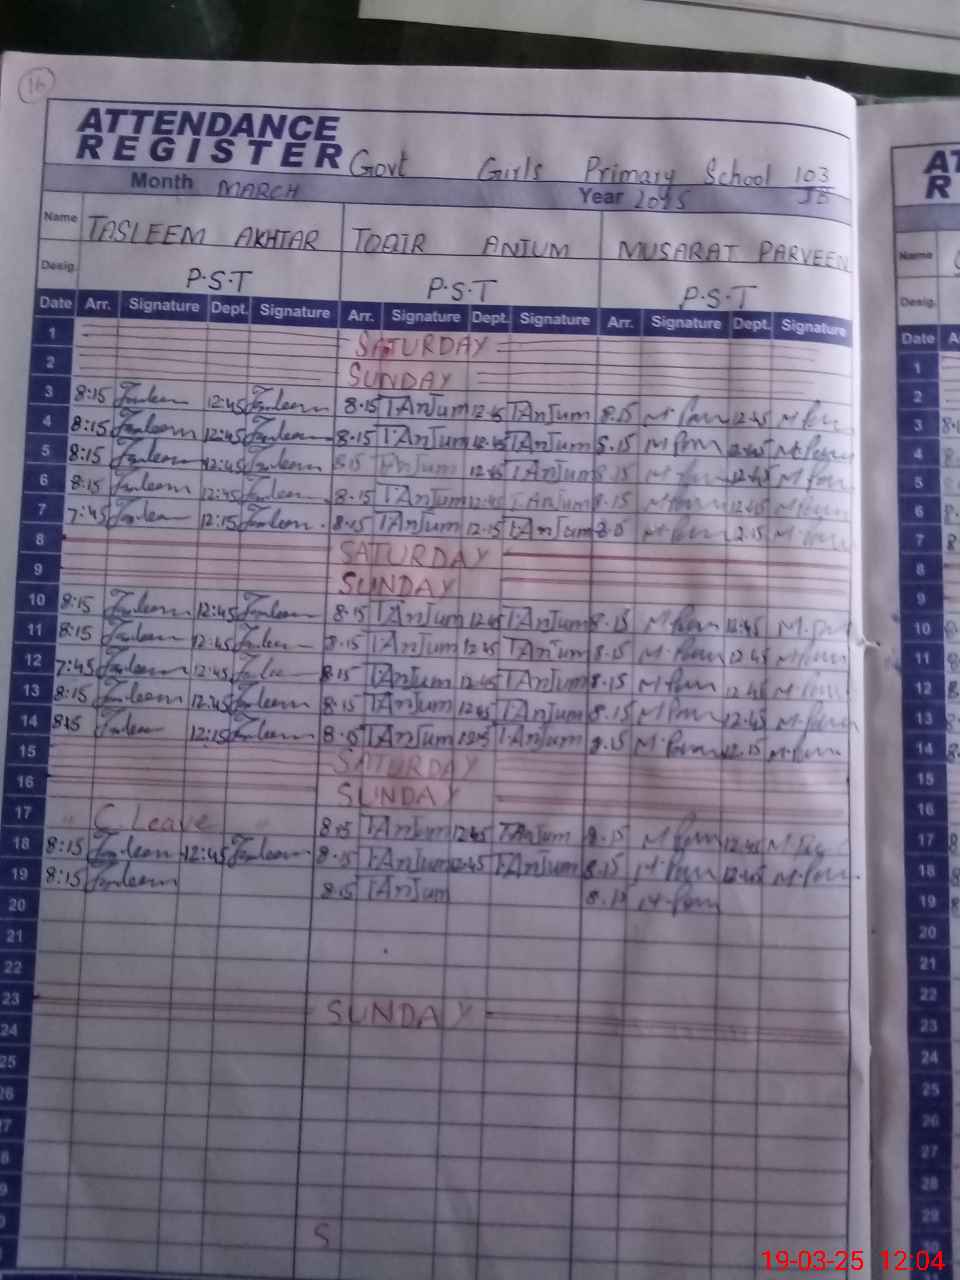 16
ATTENDANCE
REGISTER Govt Girls Primary School 103
JB
Month MARCH Year 2025
Name TASLEEM AKHTAR TODIR ANJUM MUSARAT PARVEEN
Desig. P.S.T P.S.T P.S.T
Date Arr. Signature Dept. Signature Arr. Signature Dept. Signature Arr. Signature Dept. Signature
1 SATURDAY
2 SUNDAY
3 8:15 Tasleem 12:45 Tasleem 8.15 T.AnJum 12.45 T.AnJum 8.15 12.45
4 8:15 Tasleem 12:45 Tasleem 8.15 T.AnJum 12.45 T.AnJum 8.15 12.45
5 8:15 Tasleem 12:45 Tasleem 8.15 T.AnJum 12.45 T.AnJum 8.15 12.45
6 8:15 Tasleem 12:45 Tasleem 8.15 T.AnJum 12.45 T.AnJum 8.15 12.45
7 7:45 Tasleem 12:15 Tasleem 8.15 T.AnJum 12.15 T.AnJum
8 SATURDAY
9 SUNDAY
10 8:15 Tasleem 12:45 Tasleem 8.15 T.AnJum 12.45 T.AnJum 8.15 12.45
11 8:15 Tasleem 12:45 Tasleem 8.15 T.AnJum 12.45 T.AnJum 8.15 12.45
12 7:45 Tasleem 12:45 Tasleem 8.15 T.AnJum 12.45 T.AnJum 8.15 12.45
13 8:15 Tasleem 12:45 Tasleem 8.15 T.AnJum 12.45 T.AnJum 8.15 12.45
14 8:15 Tasleem 12:15 Tasleem T.AnJum T.AnJum 8.15 12.15
15 SATURDAY
16 SUNDAY
17 C. Leave 8.15 T.AnJum 12.45 T.AnJum 8.15 12.45
18 8:15 Tasleem 12:45 Tasleem 8.15 T.AnJum 12.45 T.AnJum 8.15 12.45
19 8:15 Tasleem 8.15 T.AnJum 8.15
20
21
22
23 SUNDAY
24
25
26
27
28
29
S
Name
Desig.
Date
1
2
3
4
5
6
7
8
9
10
11
12
13
14
15
16
17
18
19
20
21
22
23
24
25
26
27
28
29
30
19-03-25 12:04